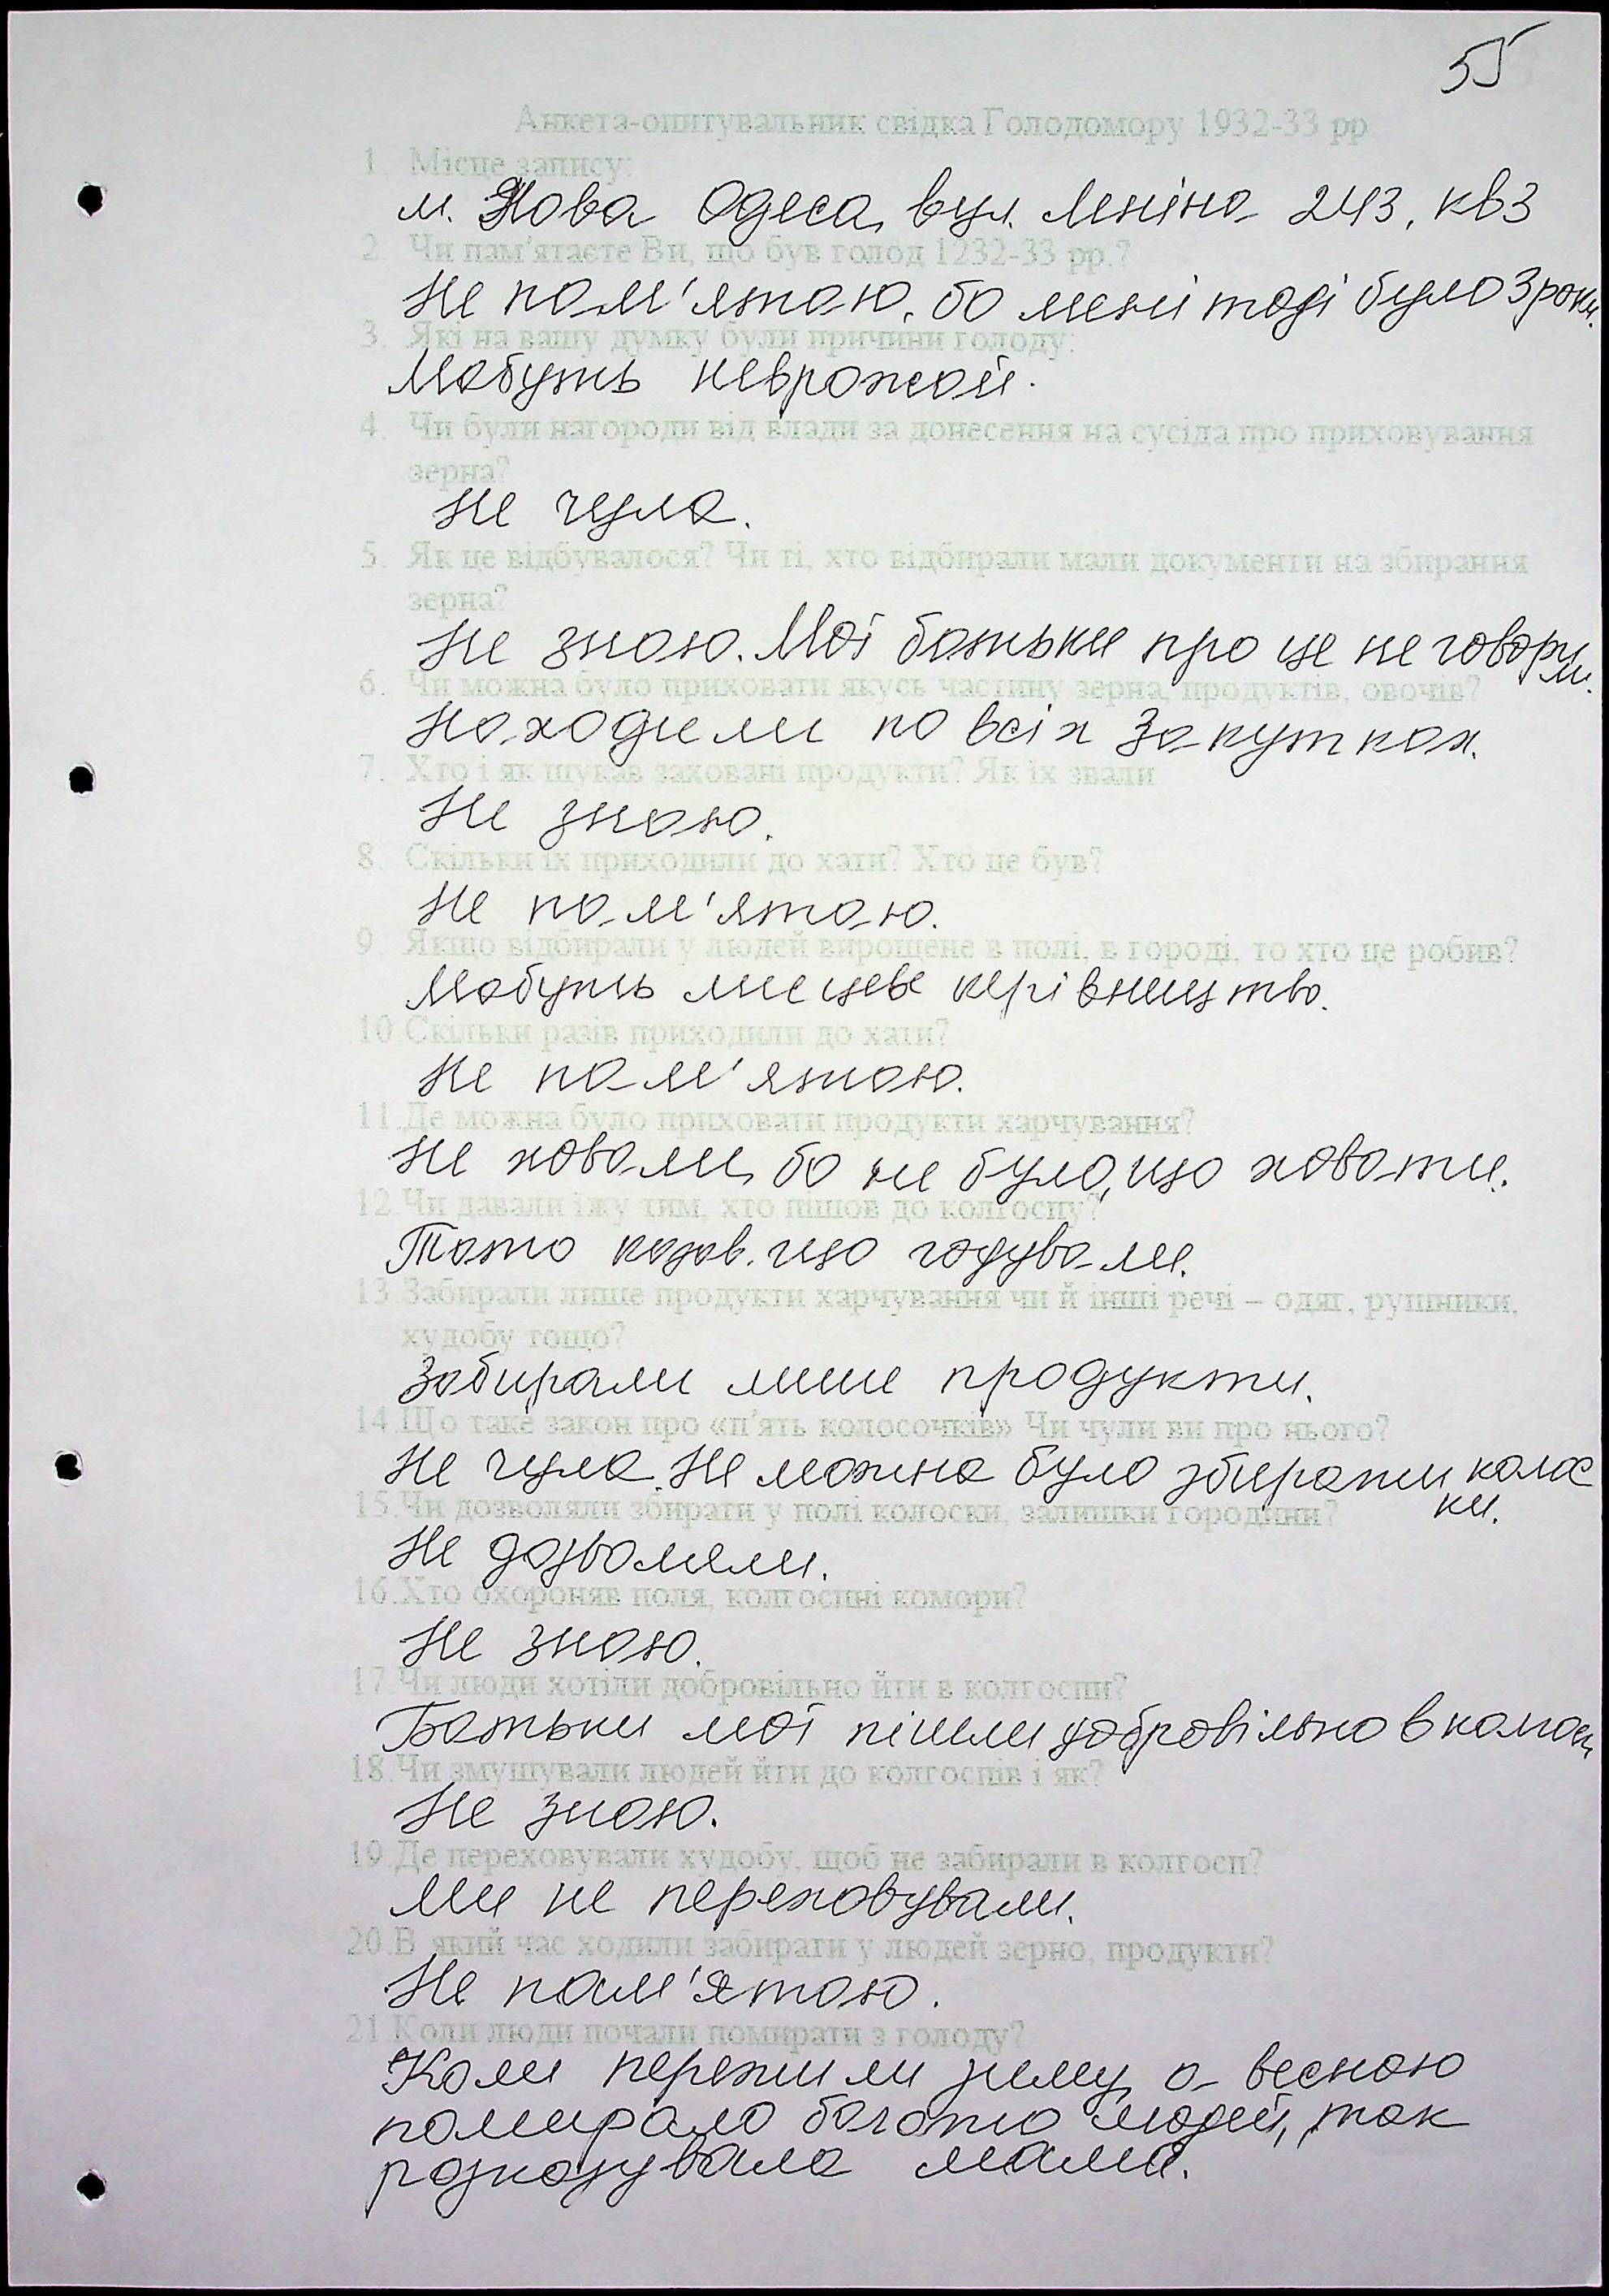 55
Анкета-опитувальник свідка Голодомору 1932-33 рр.
1. Місце запису:
м. Нова Одеса, вул. Леніна 243, кв3
2. Чи пам'ятаєте Ви, що був голод 1232-33 рр.?
Не пам'ятаю, бо мені тоді було 3 роки.
3. Які на вашу думку були причини голоду:
Мабуть неврожай.
4. Чи були нагороди від влади за донесення на сусіда про приховування
зерна?
Не чула.
5. Як це відбувалося? Чи ті, хто відбирали мали документи на збирання
зерна?
Не знаю. Мої батьки про це не говори
ли.
6. Чи можна було приховати якусь частину зерна, продуктів, овочів?
Находили по всіх закутках.
7. Хто і як шукав заховані продукти? Як їх звали
Не знаю.
8. Скільки їх приходили до хати? Хто це був?
Не пам'ятаю.
9. Якщо відбирали у людей вирощене в полі, в городі, то хто це робив?
Мабуть мисцеве керівництво.
10.Скільки разів приходили до хати?
Не пам'ятаю.
11.Де можна було приховати продукти харчування?
Не ховали, бо не було, що ховати.
12.Чи давали їжу тим, хто пішов до колгоспу?
Тато казав, що годували.
13.Забирали лише продукти харчування чи й інші речі – одяг, рушники,
худобу тощо?
Забирали лише продукти.
14.Що таке закон про «п'ять колосочків» Чи чули ви про нього?
Не чула. Не можна було збирати колос
ки.
15.Чи дозволяли збирати у полі колоски, залишки городини?
Не дозволяли.
16.Хто охороняв поля, колгоспні комори?
Не знаю.
17.Чи люди хотіли добровільно йти в колгоспи?
Батьки мої пішли добровільно в
18.Чи змушували людей йти до колгоспів і як?
Не знаю.
19.Де переховували худобу, щоб не забирали в колгосп?
Ми не переховували.
20.В який час ходили забирати у людей зерно, продукти?
Не пам'ятаю.
21.Коли люди почали помирати з голоду?
Коли пережили зиму, а весною
помирало багато людей, так
розказувала мама.